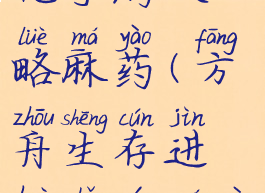 lüè má yào fāng
略麻药(方
zhōu shēng cún jìn
舟生存进